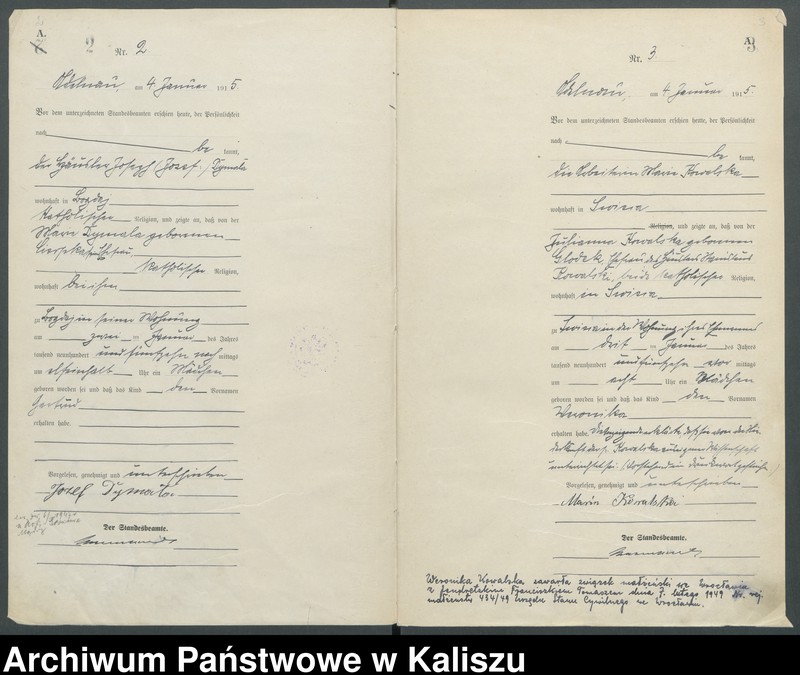 A.
2
Nr. 2.
am 4. Januar 1915.
Vor dem unterzeichneten Standesbeamten erschien heute, der Persönlichkeit
nach
be kannt,
der Häusler Joseph (Josef) Dymala
wohnhaft in Bogdaj
katholischer Religion, und zeigte an, daß von der
Marie Dymala geborenen
katholischer Religion,
wohnhaft bei ihm
zu Bogdaj in seiner Wohnung
am zwei ten Januar des Jahres
tausend neunhundert und fünfzehn nach mittags
um elfeinhalb Uhr ein Mädchen
geboren worden sei und daß das Kind den Vornamen
Gertrud
erhalten habe.
Vorgelesen, genehmigt und unterschrieben
Josef Dymala
Der Standesbeamte.
A.
3
Nr. 3
am 4. Januar 1915.
Vor dem unterzeichneten Standesbeamten erschien heute, der Persönlichkeit
nach
be kannt,
die Arbeiterin Marie Kowalska
wohnhaft in
Religion, und zeigte an, daß von der
Julianna Kowalska geborenen
Glodek, Ehefrau des Häuslers Stanislaus
Kowalski, beide katholischer Religion,
wohnhaft in
zu in der Wohnung ihres Ehemannes
am drit ten Januar des Jahres
tausend neunhundert und fünfzehn vor mittags
um acht Uhr ein Mädchen
geboren worden sei und daß das Kind den Vornamen
Weronika
erhalten habe. Die Anzeigende erklärte, daß sie von der Nie-
derkunft der p. Kowalska aus eigener Wissenschaft
unterrichtet sei.
Vorgelesen, genehmigt und unterschrieben
Maria Kowalska
Der Standesbeamte.
Weronika Kowalska zawarła związek małżeński we Wrocławiu
z Franciszkiem Tomaszem dnia 7. lutego 1949 Nr. rej.
małżeństw 434/49 Urzędu Stanu Cywilnego we Wrocławiu.
Archiwum Państwowe w Kaliszu